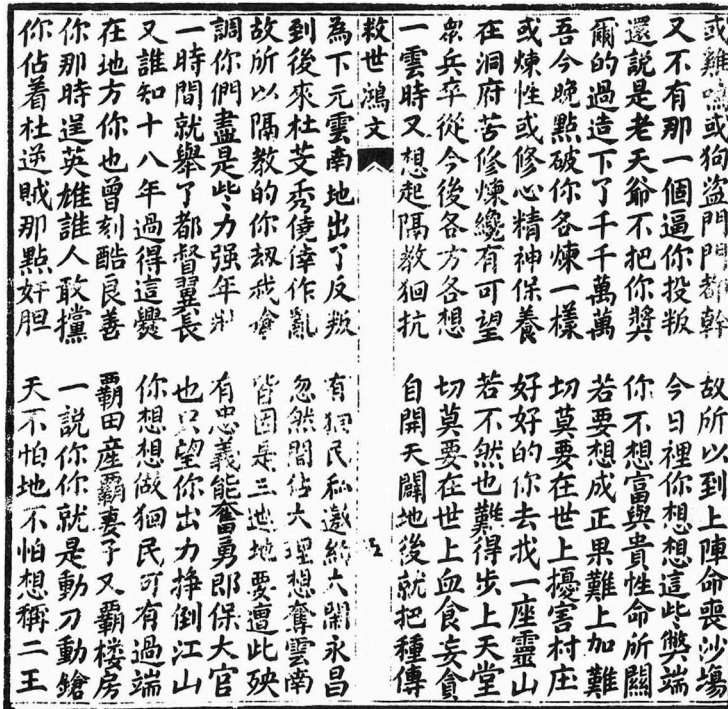 或雞鳴或狗盜門門都幹 故所以到上陣命喪沙場
又不有那一個逼你投叛 今日裡你想想這些獘端
還說是老天爺不把你獎 你不想富與貴性命所關
爾的過造下了千千萬萬 若要想成正果難上加難
吾今晚點破你各煉一樣 切莫要在世上擾害村庄
或煉性或修心精神保養 好好的你去找一座靈山
在洞府苦修煉纔有可望 若不然也難得步上天堂
眾兵卒從今後各方各想 切莫要在世上血食妄貪
一雲時又想起隔教狪抗 自開天闢地後就把種傳
救世鴻文
為下元雲南地出了反叛 有狪民私邀結大閙永昌
到後來杜芠秀僥倖作亂 忽然間佔大理想奪雲南
故所以隔教的你刼我 皆因是三迤地要遭此殃
調你們盡是些力强年 有忠義能奮勇郎保大官
一時間就舉了都督翼長 也只望你出力挣倒江山
又誰知十八年過得這爨 你想想做狪民可有過端
在地方你也曾刻酷良善 霸田産霸妻子又霸楼房
你那時逞英雄誰人敢攩 一說你你就是動刀動鎗
你佔着杜逆賊那點奸胆 天不怕地不怕想稱二王